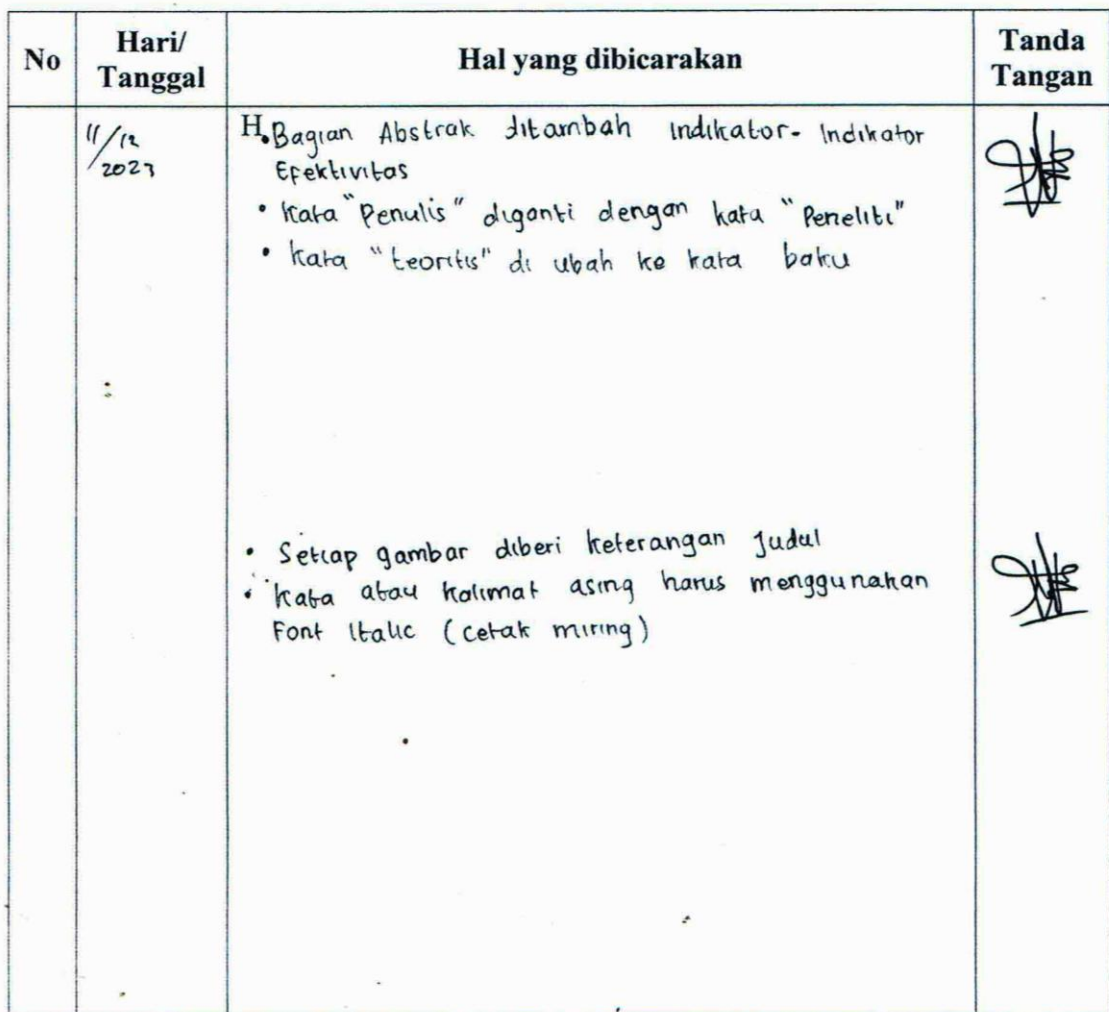 No
Hari/
Tanggal
Hal yang dibicarakan
Tanda
Tangan
11/12
2023
H. Bagian Abstrak ditambah indikator-indikator
Efektivitas
• Kata "Penulis" diganti dengan kata "Peneliti"
• Kata "teoritis" di ubah ke kata baku
• Setiap gambar diberi keterangan Judul
• Kata atau kalimat asing harus menggunakan
Font Italic (cetak miring)